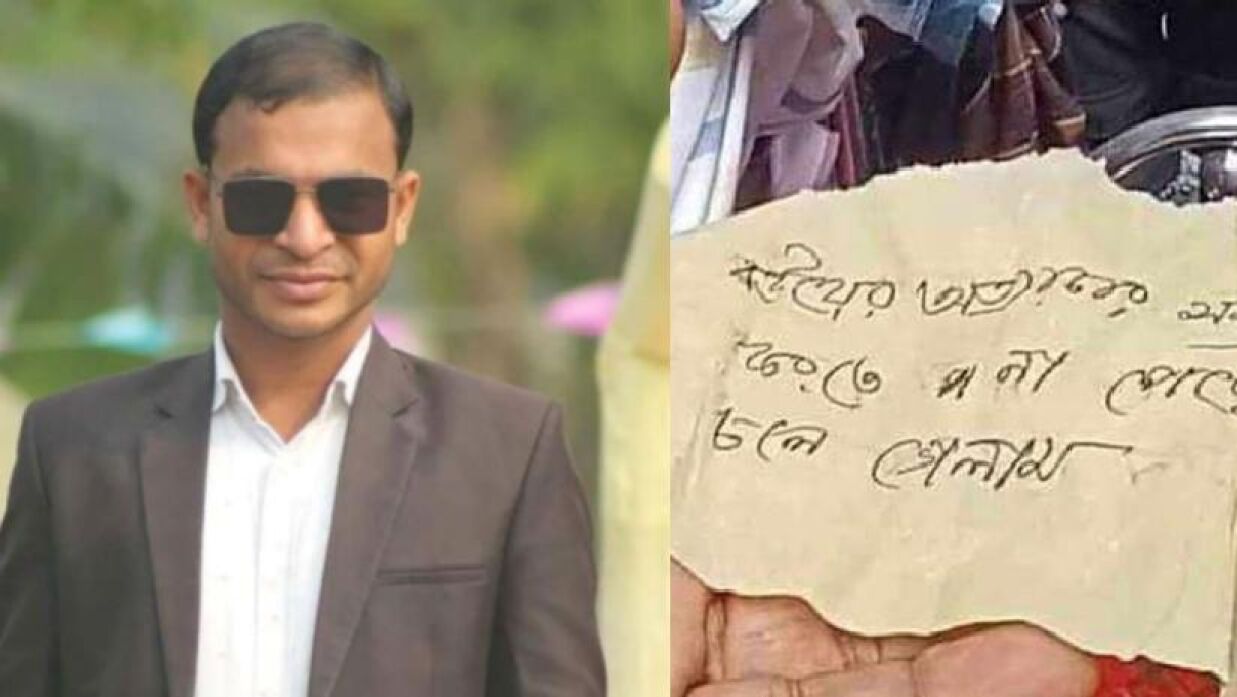 বউয়ের অত্যাচার
করতে না
চলে গেলাম